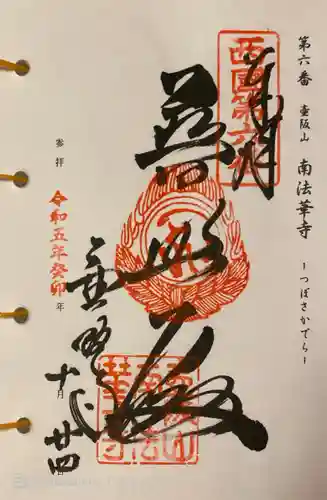 第六番 壺阪山 南法華寺 ーつぼさかでらー
西國第六番
奉拝
普照殿
壺阪寺
参拝 令和五年癸卯年 十月廿四日